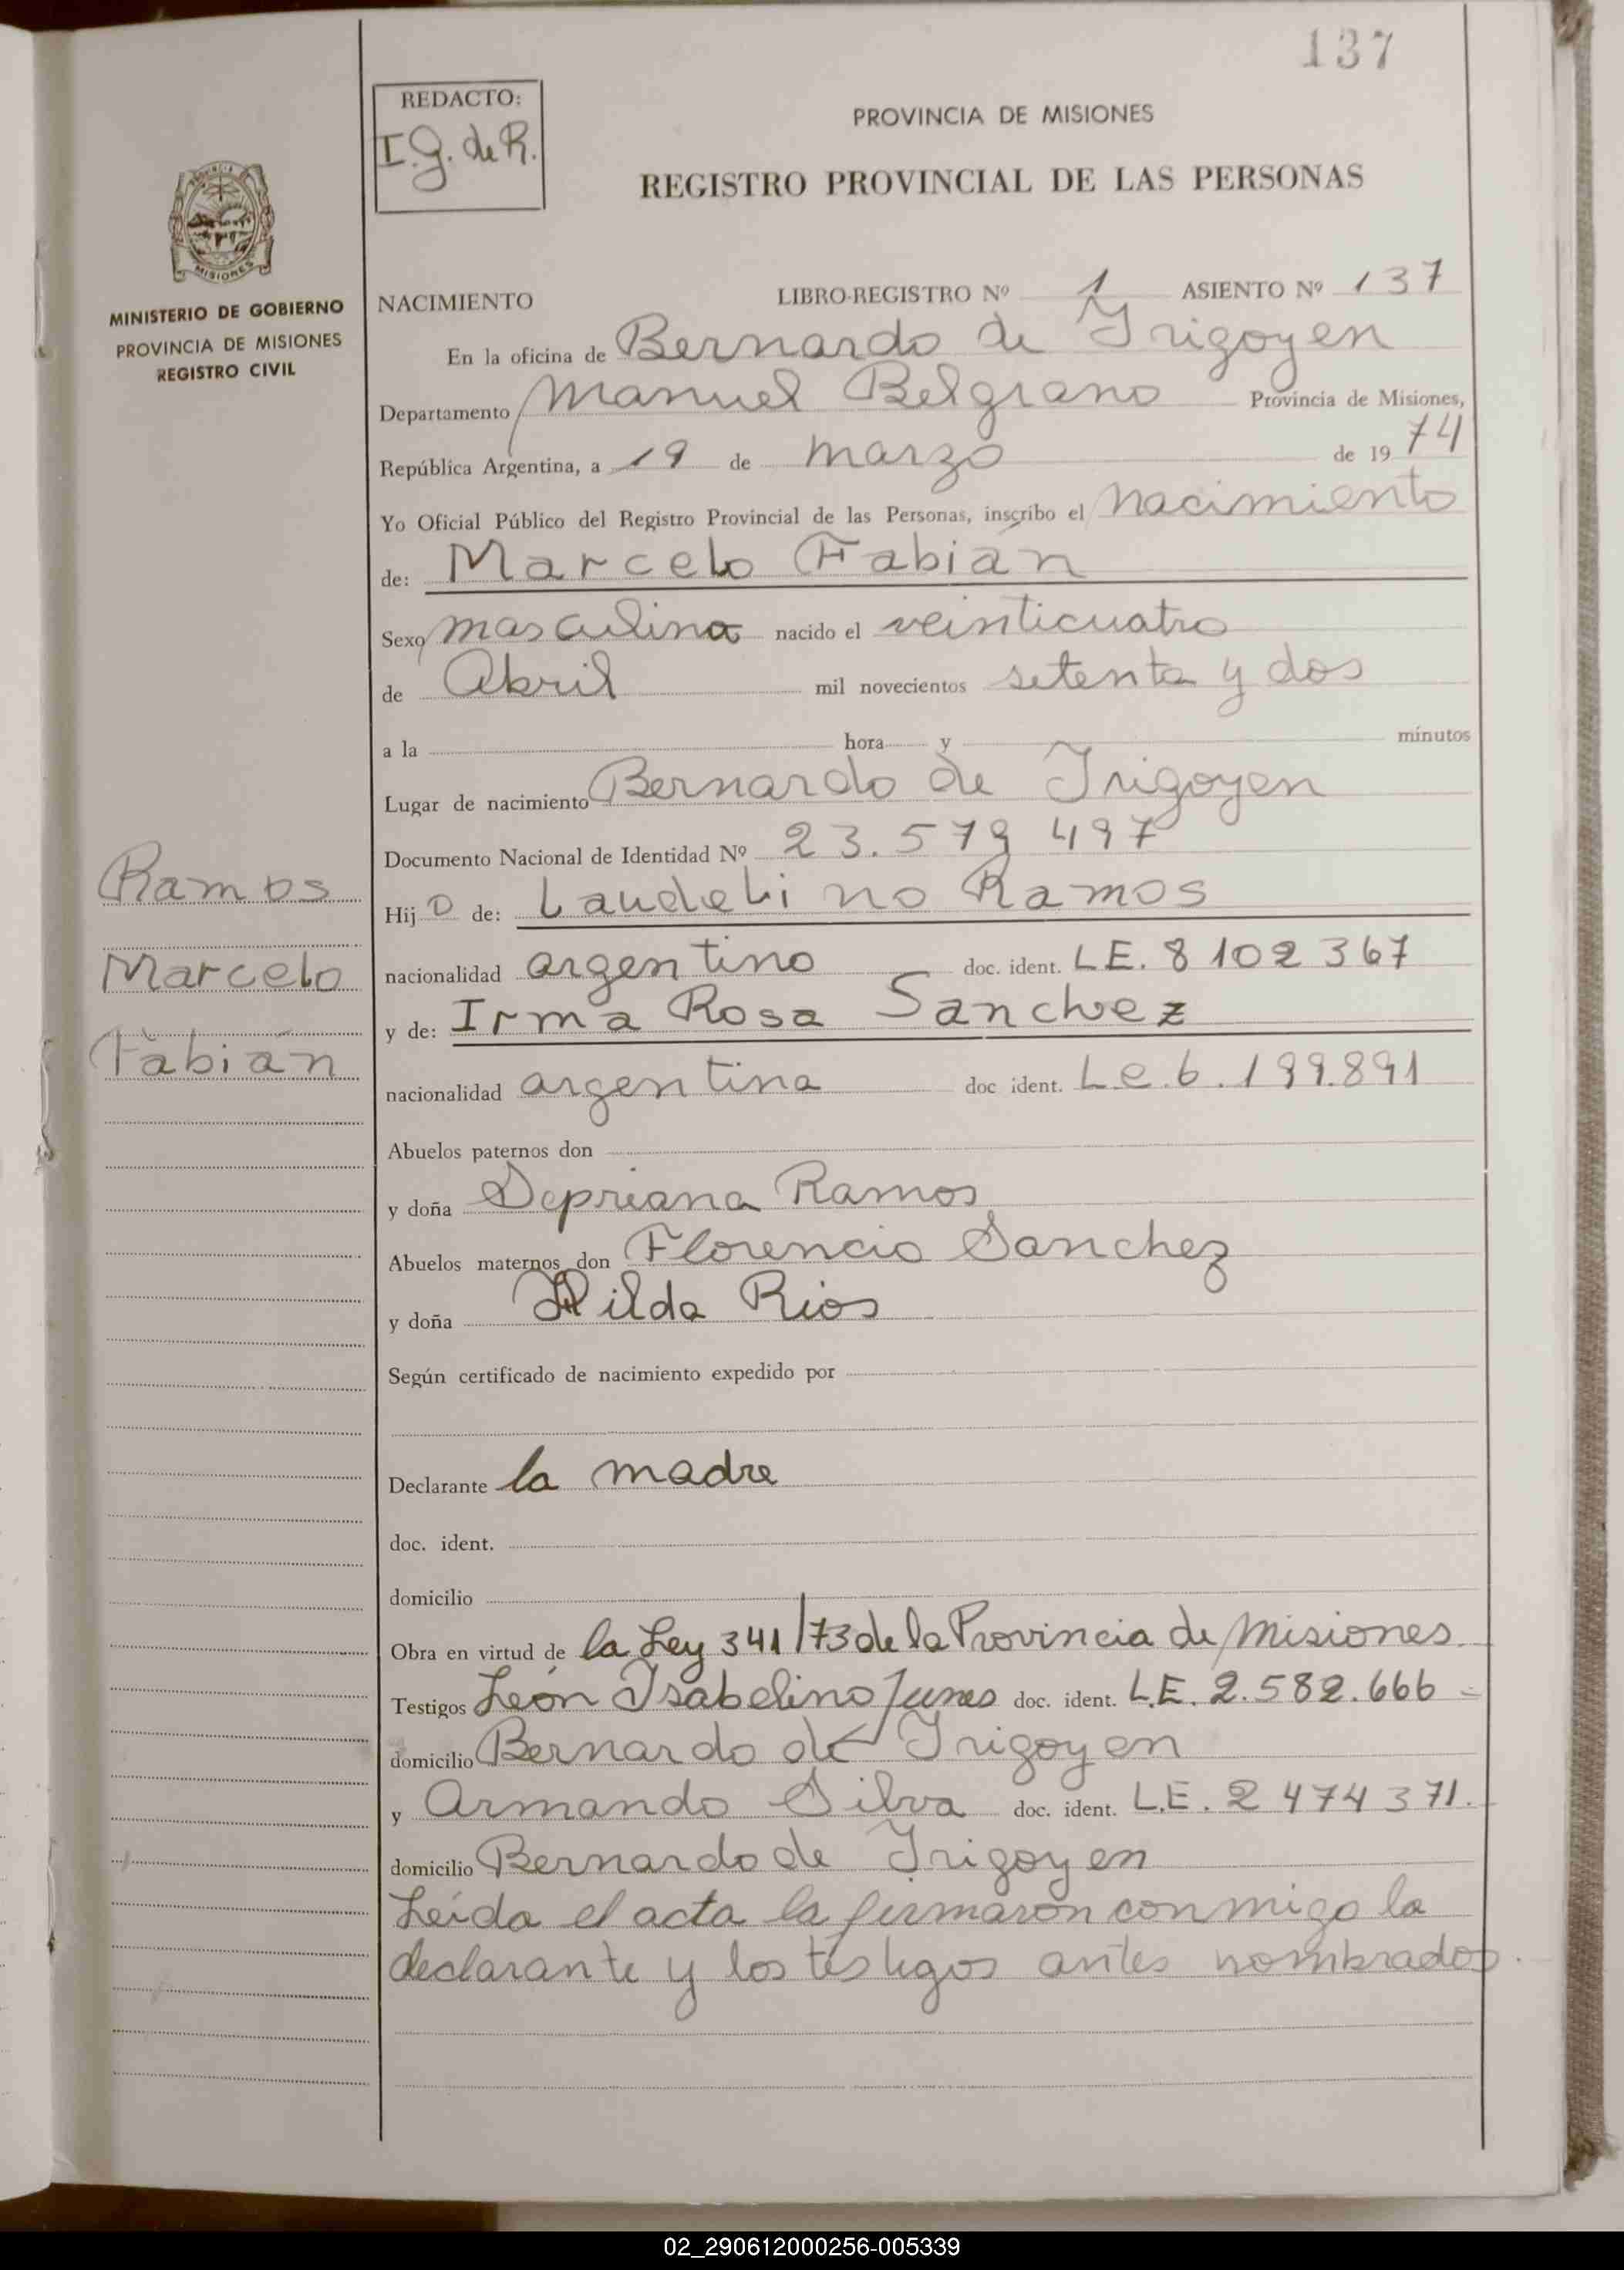 137
REDACTO:
I.G. de R.
PROVINCIA DE MISIONES
REGISTRO PROVINCIAL DE LAS PERSONAS
MISIONES
MINISTERIO DE GOBIERNO
PROVINCIA DE MISIONES
REGISTRO CIVIL
NACIMIENTO LIBRO-REGISTRO Nº 1 ASIENTO Nº 137
En la oficina de Bernardo de Irigoyen
Departamento Manuel Belgrano Provincia de Misiones,
República Argentina, a 19 de marzo de 1974
Yo Oficial Público del Registro Provincial de las Personas, inscribo el nacimiento
de: Marcelo Fabián
Sexo masculino nacido el veinticuatro
de Abril mil novecientos setenta y dos
a la hora y minutos
Lugar de nacimiento Bernardo de Irigoyen
Documento Nacional de Identidad Nº 23.579 497
Ramos
Hij o de: Laudelino Ramos
Marcelo
nacionalidad argentino doc. ident. LE. 8 102 367
y de: Irma Rosa Sanchez
Fabián
nacionalidad argentina doc ident. L e. 6.199.891
Abuelos paternos don
y doña Sepriana Ramos
Abuelos maternos don Florencio Sanchez
y doña Hilda Rios
Según certificado de nacimiento expedido por
Declarante la madre
doc. ident.
domicilio
Obra en virtud de la Ley 341/73 de la Provincia de Misiones
Testigos León Isabelino doc. ident. L.E. 2.582.666 -
domicilio Bernardo de Irigoyen
y Armando Silva doc. ident. L.E. 2 474 371.
domicilio Bernardo de Irigoyen
Leída el acta la firmaron conmigo la
declarante y los testigos antes nombrados.
02_290612000256-005339